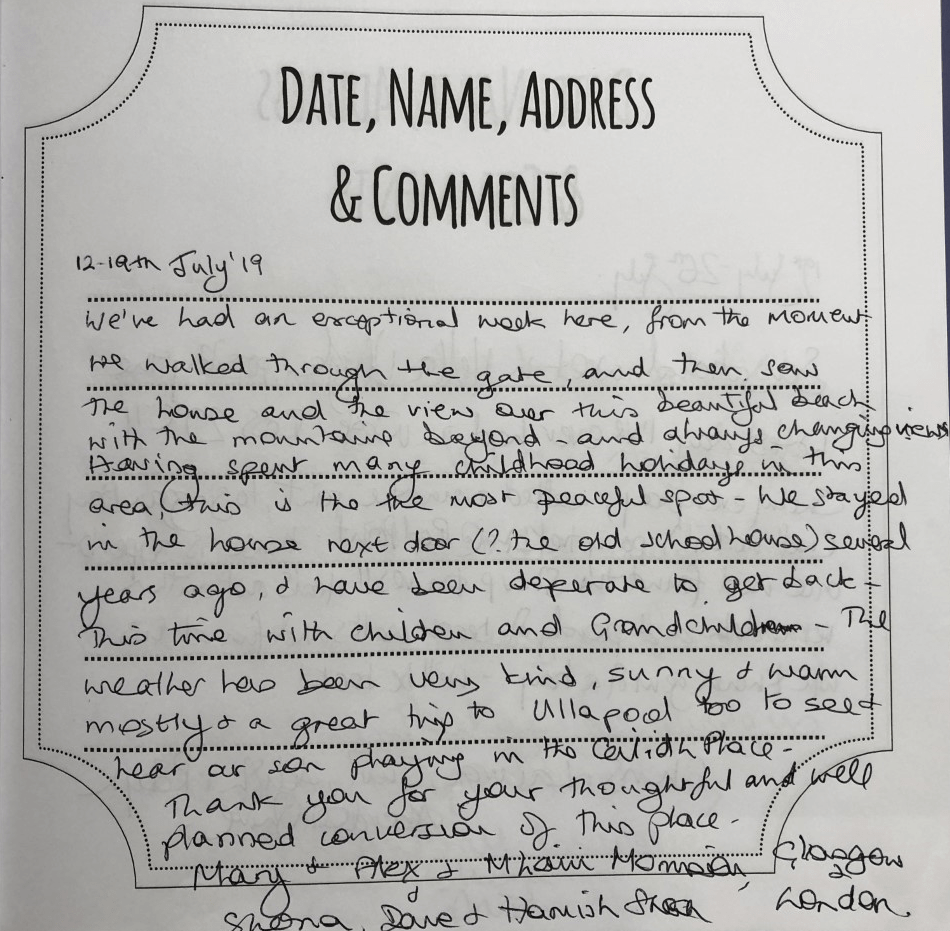 DATE, NAME, ADDRESS
& COMMENTS
12-19th July '19
We've had an exceptional week here, from the moment
we walked through the gate, and then saw
the house and the view over this beautiful beach
with the mountains beyond - and always changing views
Having spent many childhood holidays in this
area, this is the the most peaceful spot - We stayed
in the house next door (? the old schoolhouse) several
years ago, & have been deperate to get back -
This time with children and Grandchildren - The
weather has been very kind, sunny & warm
mostly & a great trip to Ullapool too to see &
hear our son playing in the Ceilidh Place -
Thank you for your thoughtful and well
planned conversion of this place -
Mary & Alex & Mhairi Glasgow
&
Shona, Dave & Hamish London.